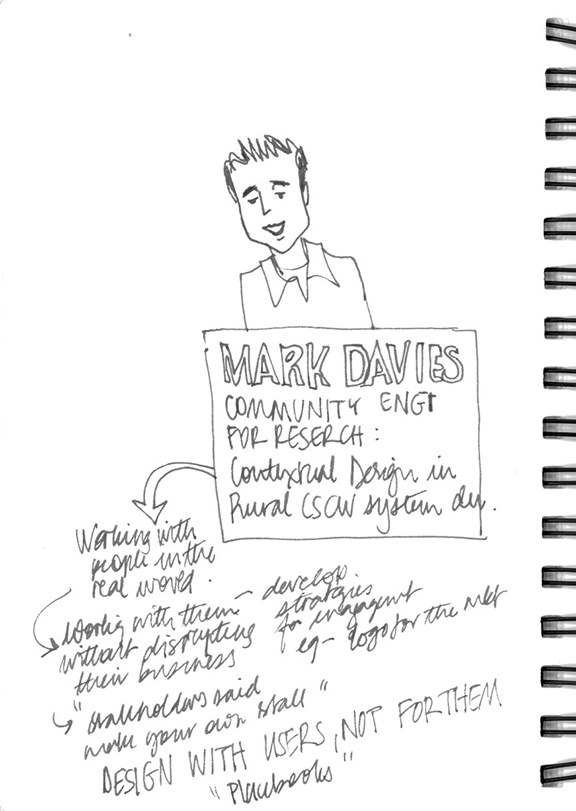 MARK DAVIES
COMMUNITY ENGT
FOR RESERCH :
Contextual Design in
Rural CSCW system dev.
Working with
people in the
real world.
Working with them
without disrupting
their business
- develop
strategies
for engagement
eg - logo for the mkt
"Stallholders said
make your own stall"
DESIGN WITH USERS, NOT FOR THEM
"Placebooks"